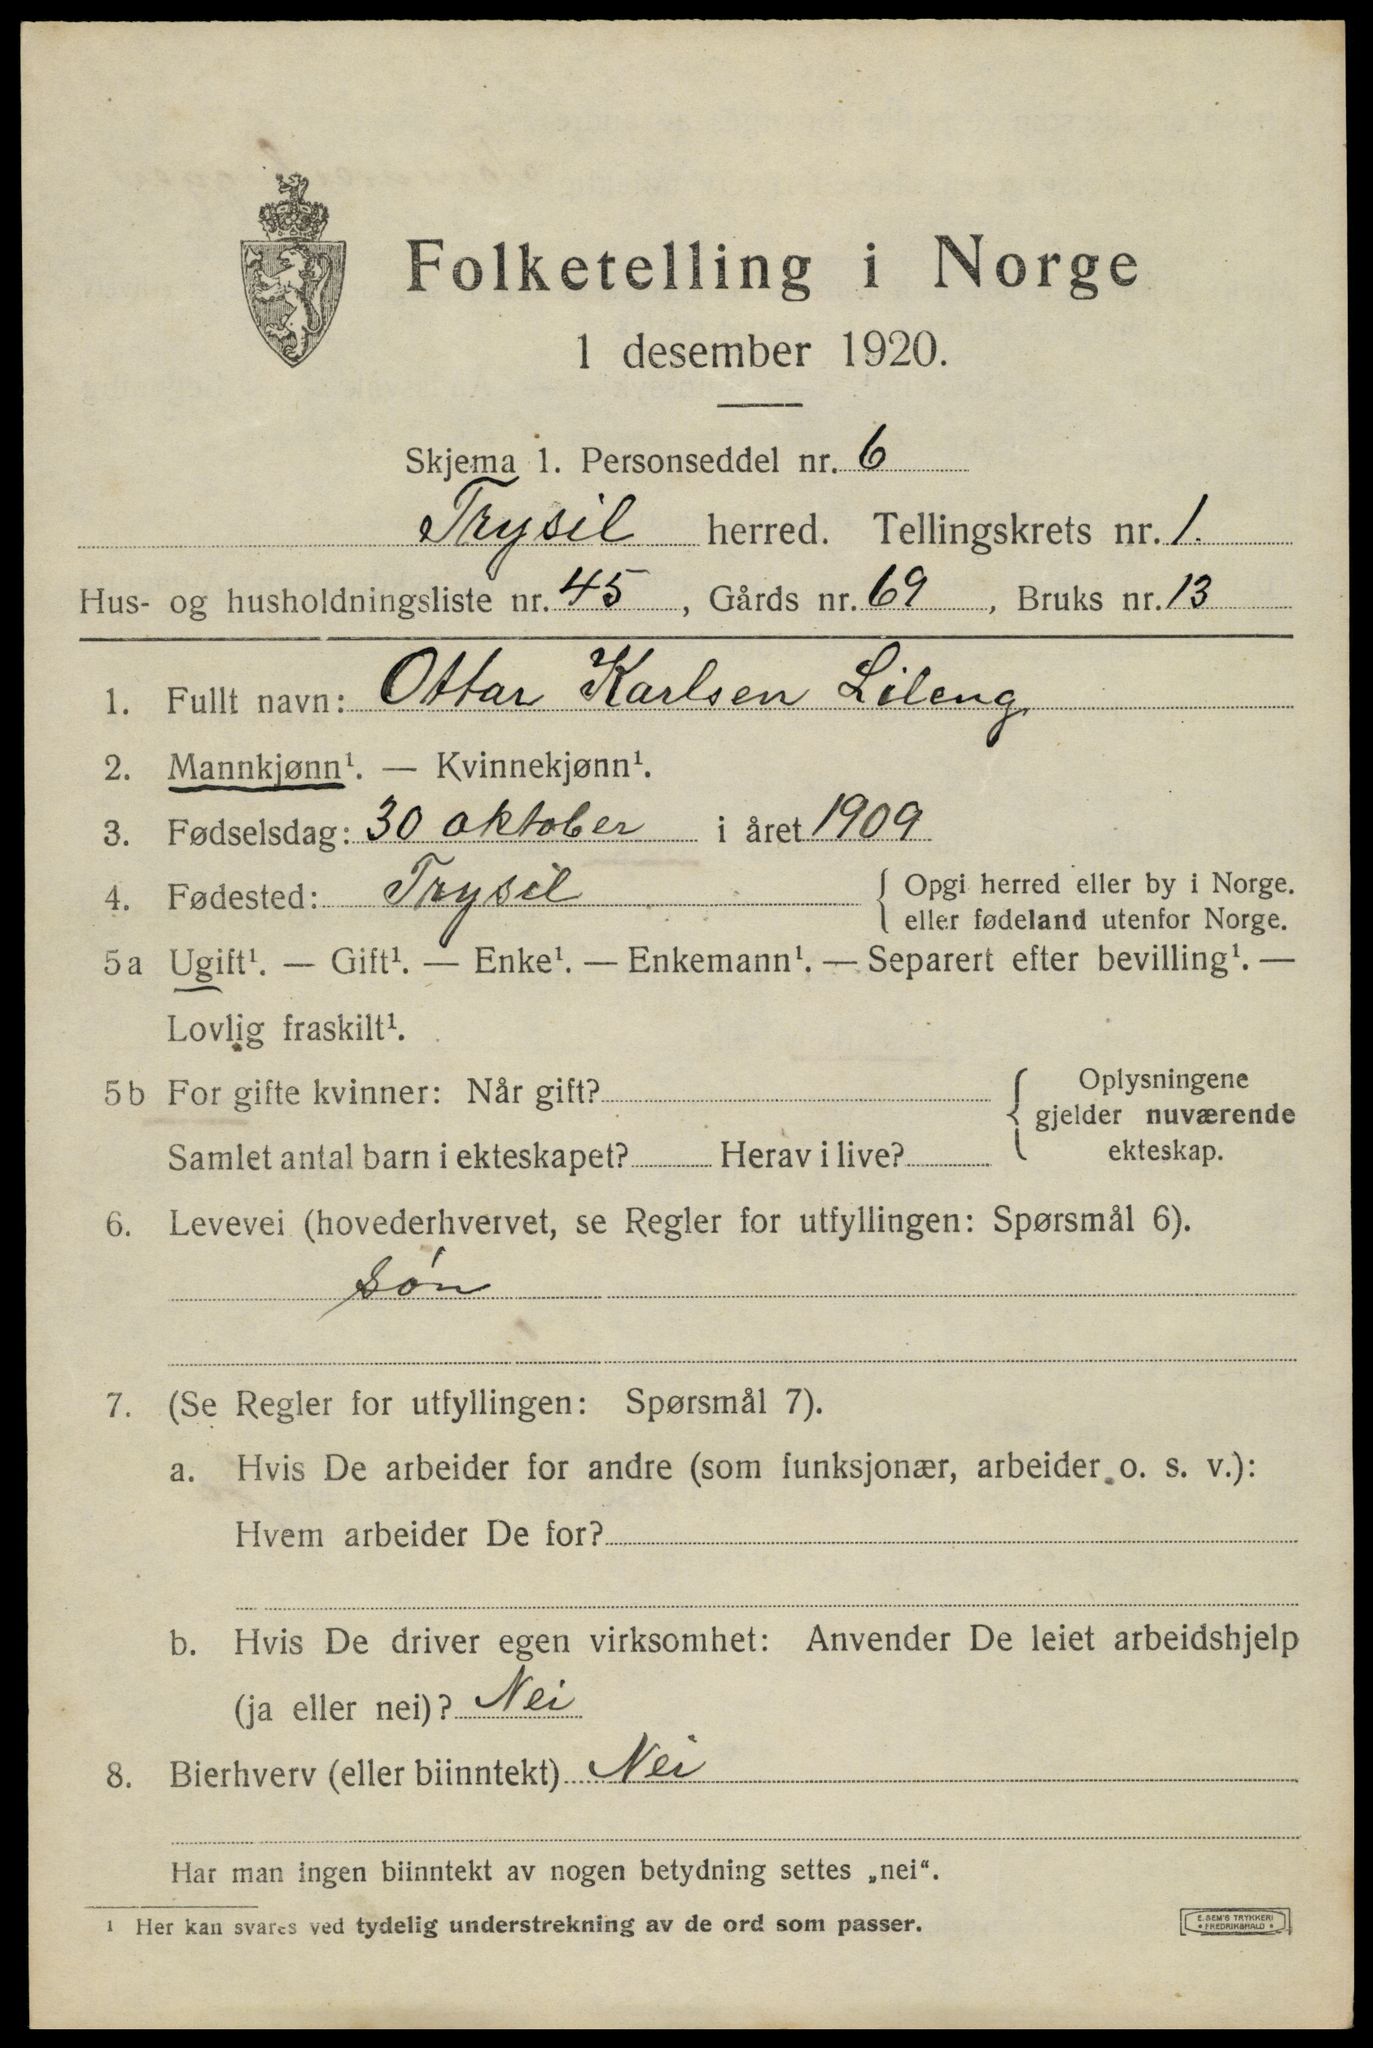 Folketelling i Norge
1 desember 1920.
Skjema 1. Personseddel nr. 6
Trysil herred. Tellingskrets nr. 1.
Hus- og husholdningsliste nr. 45, Gårds nr. 69, Bruks nr. 13
1. Fullt navn: Ottar Karlsen Lileng
2. Mannkjønn¹. — Kvinnekjønn¹.
3. Fødselsdag: 30 oktober i året 1909
4. Fødested: Trysil { Opgi herred eller by i Norge.
eller fødeland utenfor Norge.
5a Ugift¹. — Gift¹. — Enke¹. — Enkemann¹. — Separert efter bevilling¹. —
Lovlig fraskilt¹.
5b For gifte kvinner: Når gift? { Oplysningene
gjelder nuværende
Samlet antal barn i ekteskapet? Herav i live? ekteskap.
6. Levevei (hovederhvervet, se Regler for utfyllingen: Spørsmål 6).
søn
7. (Se Regler for utfyllingen: Spørsmål 7).
a. Hvis De arbeider for andre (som funksjonær, arbeider o. s. v.):
Hvem arbeider De for?
b. Hvis De driver egen virksomhet: Anvender De leiet arbeidshjelp
(ja eller nei)? Nei
8. Bierhverv (eller biinntekt) Nei
Har man ingen biinntekt av nogen betydning settes „nei“.
¹ Her kan svares ved tydelig understrekning av de ord som passer.
E. SEM'S TRYKKERI
• FREDRIKSHALD •